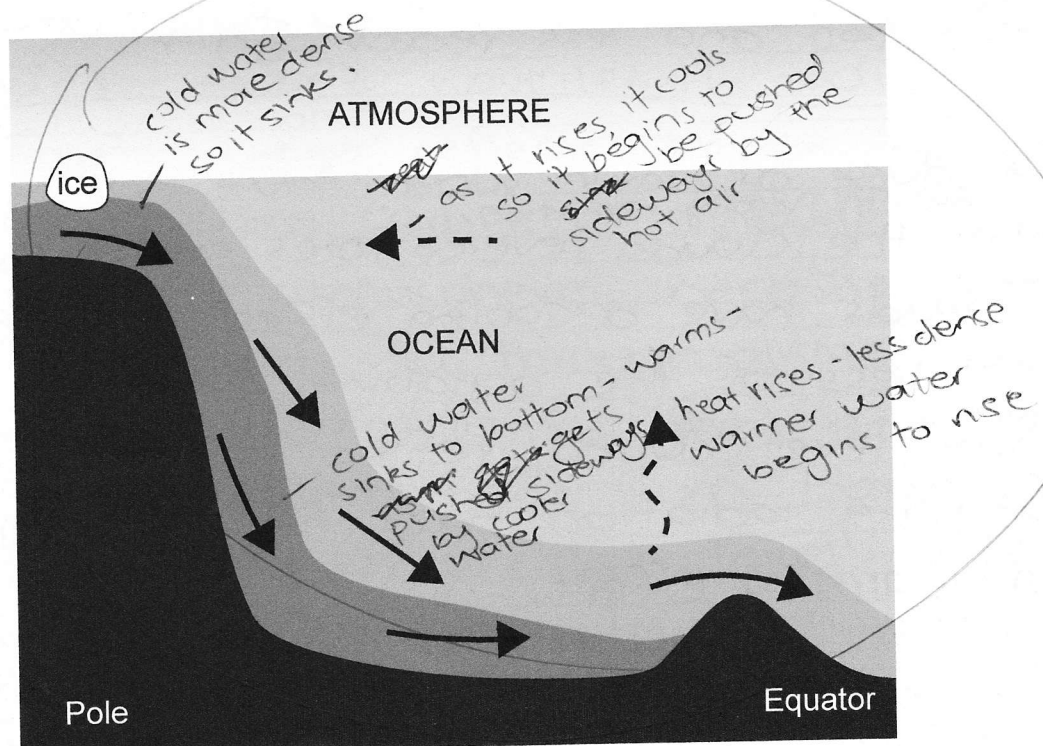 cold water
is more dense
so it sinks.
ATMOSPHERE
as it rises, it cools
so it begins to
be pushed
sideways by the
hot air
ice
OCEAN
cold water
sinks to bottom - warms -
gets
pushed sideways
by cooler
water
heat rises - less dense
warmer water
begins to rise
Pole
Equator